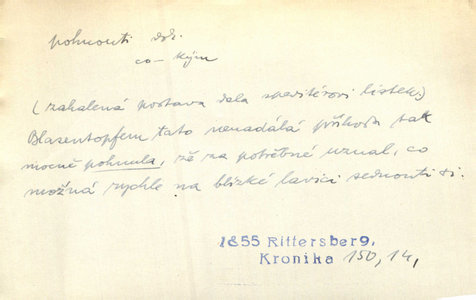 pohnouti dok.
co – kým
(zahalená postava dala speditérovi lístek.)
Blasentopfem tato nenadálá příhoda tak
mocně pohnula, že za potřebné uznal, co
možná rychle na blízké lavici sednouti si.
1855 Rittersberg,
Kronika 150, 14,